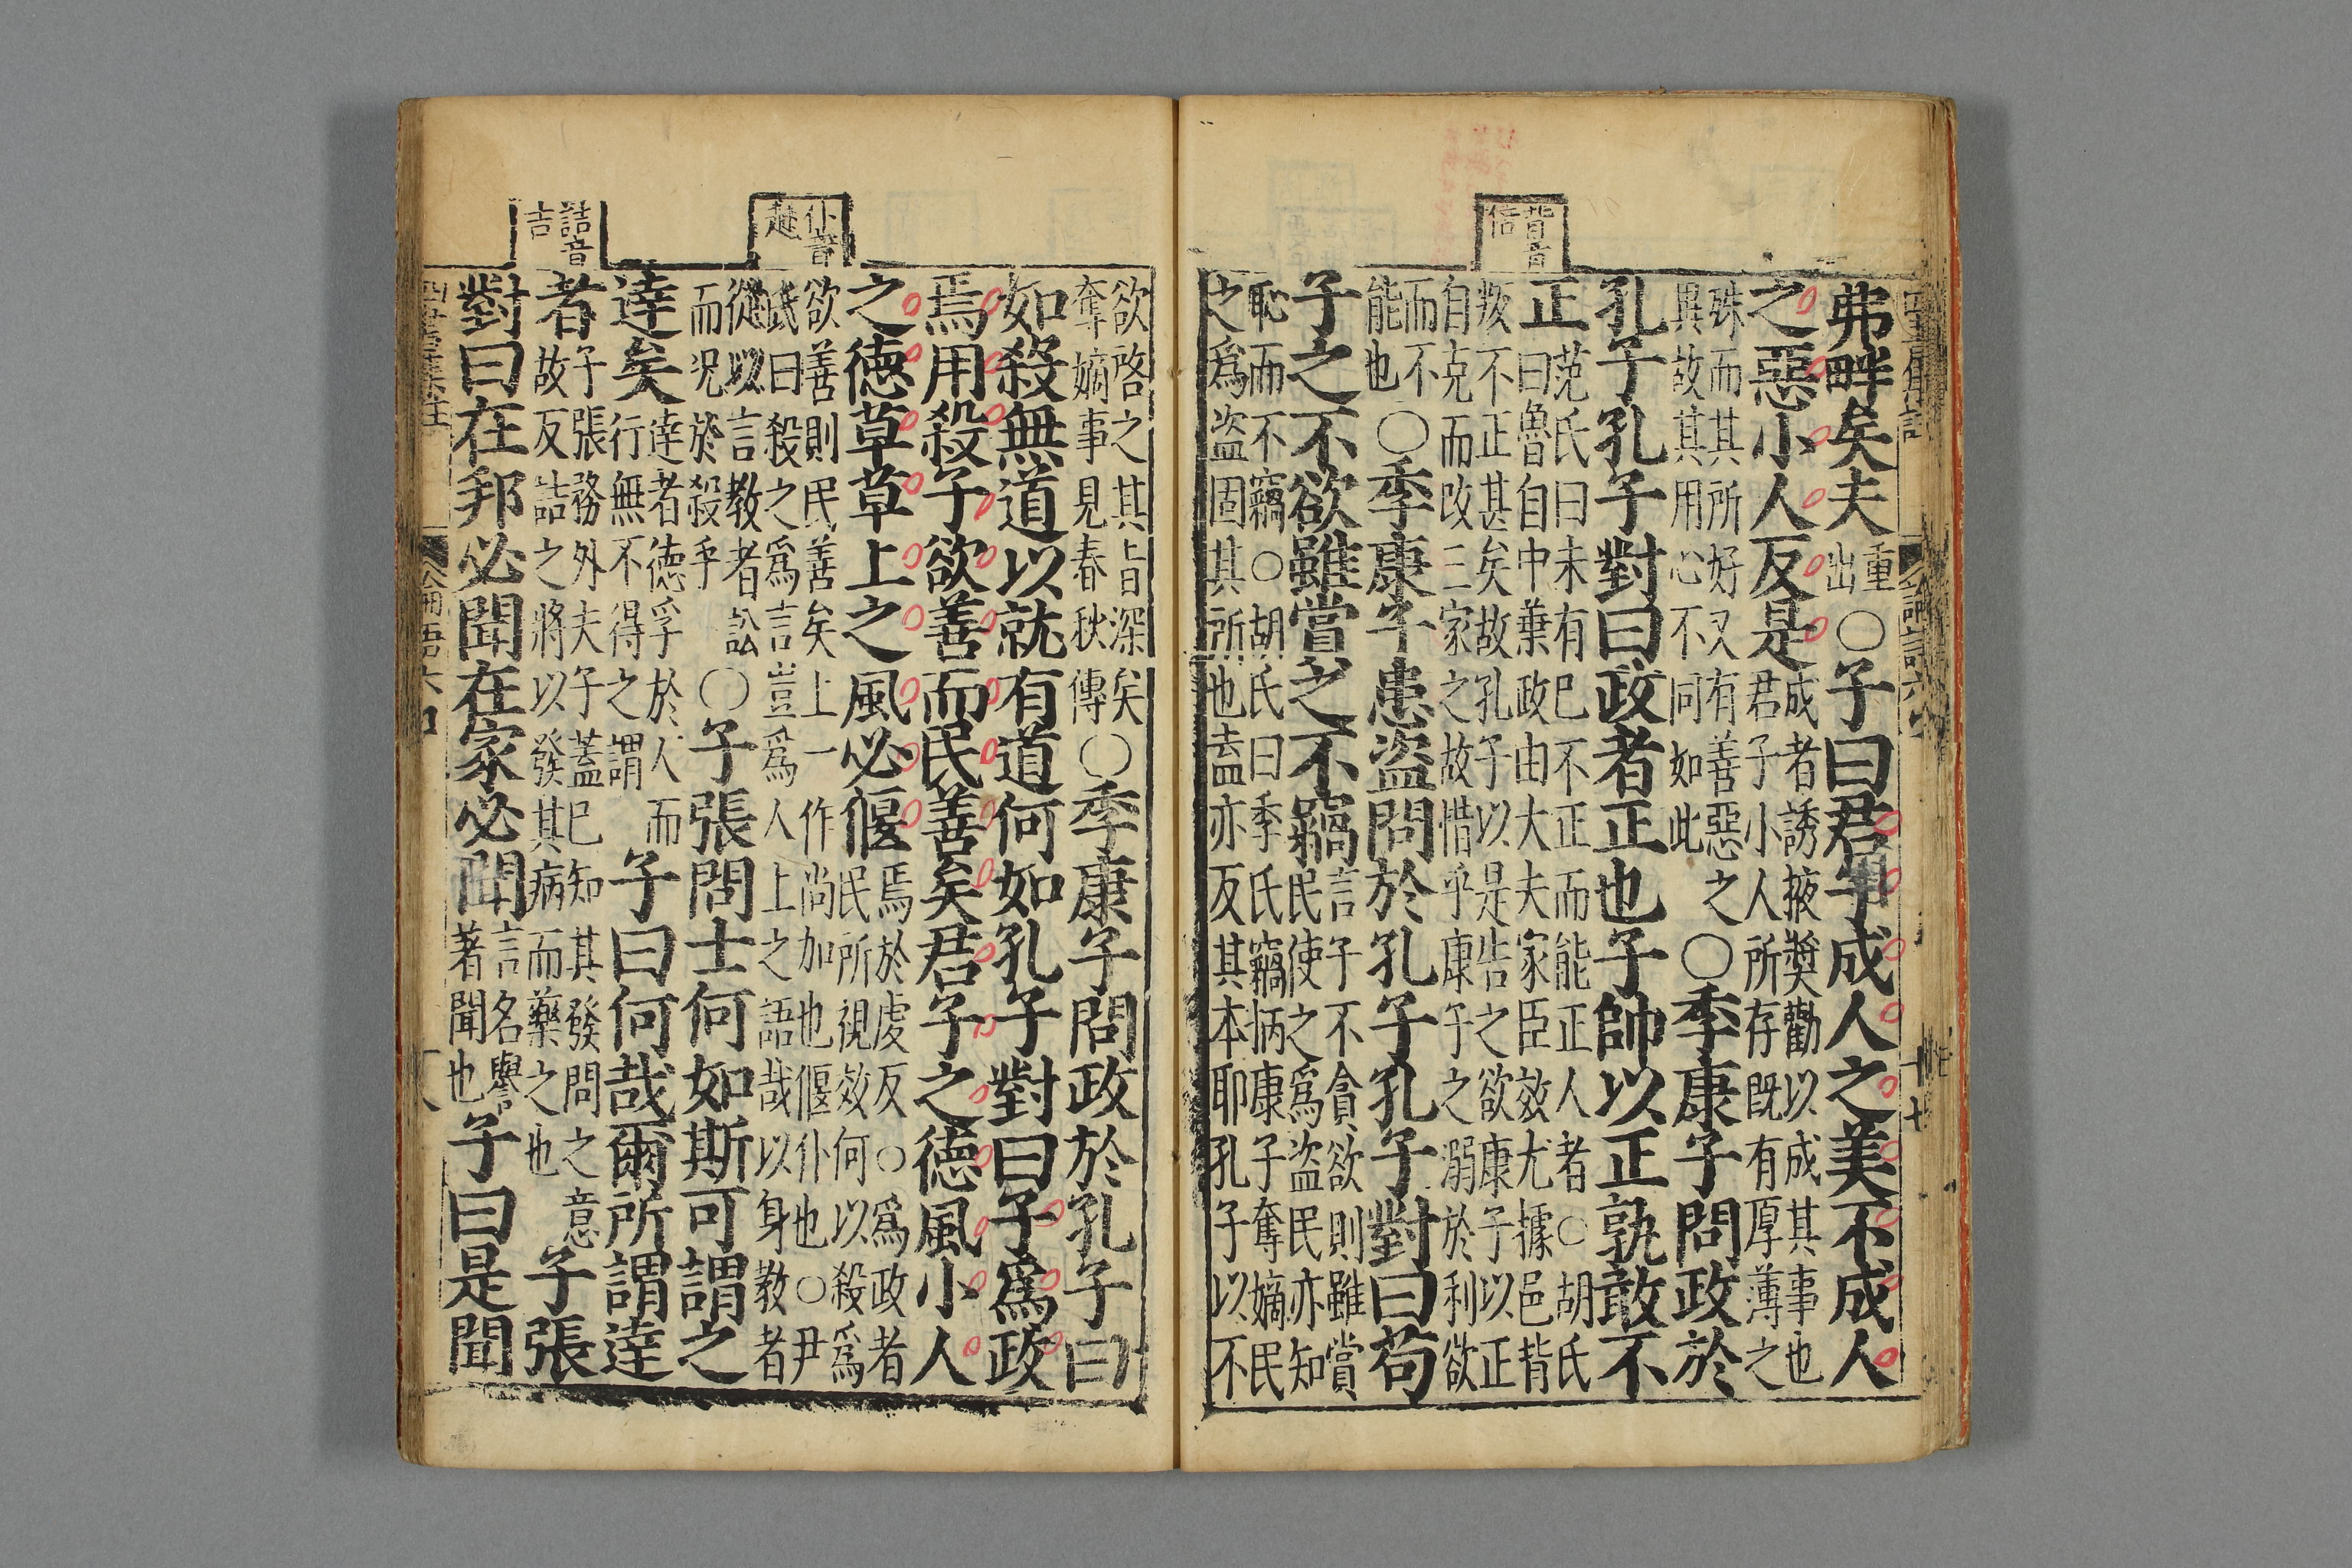 背音倍
弗畔矣夫重出〇子曰君子成人之美不成人
之惡小人反是成者誘掖奬勸以成其事也君子小人所存既有厚薄之
殊而其所好又有善惡之異故其用心不同如此〇季康子問政於
孔子孔子對曰政者正也子帥以正孰敢不
正范氏曰未有己不正而能正人者〇胡氏曰魯自中葉政由大夫家臣效尤據邑背
叛不正甚矣故孔子以是告之欲康子以正自克而改三家之故惜乎康子之溺於利欲
而不能也〇季康子患盜問於孔子孔子對曰苟
子之不欲雖賞之不竊言子不貪欲則雖賞民使之爲盜民亦知
恥而不竊〇胡氏曰季氏竊柄康子奪嫡民之爲盜固其所也盍亦反其本耶孔子以不
仆音赴
詰音吉
欲啓之其旨深矣奪嫡事見春秋傳〇季康子問政於孔子曰
如殺無道以就有道何如孔子對曰子爲政
焉用殺子欲善而民善矣君子之德風小人
之德草草上之風必偃焉於虔反〇爲政者民所視效何以殺爲
欲善則民善矣上一作尚加也偃仆也〇尹氏曰殺之爲言豈爲人上之語哉以身教者
從以言教者訟而況於殺乎〇子張問士何如斯可謂之
達矣達者德孚於人而行無不得之謂子曰何哉爾所謂達
者子張務外夫子蓋已知其發問之意故反詰之將以發其病而藥之也子張
對曰在邦必聞在家必聞言名譽著聞也子曰是聞